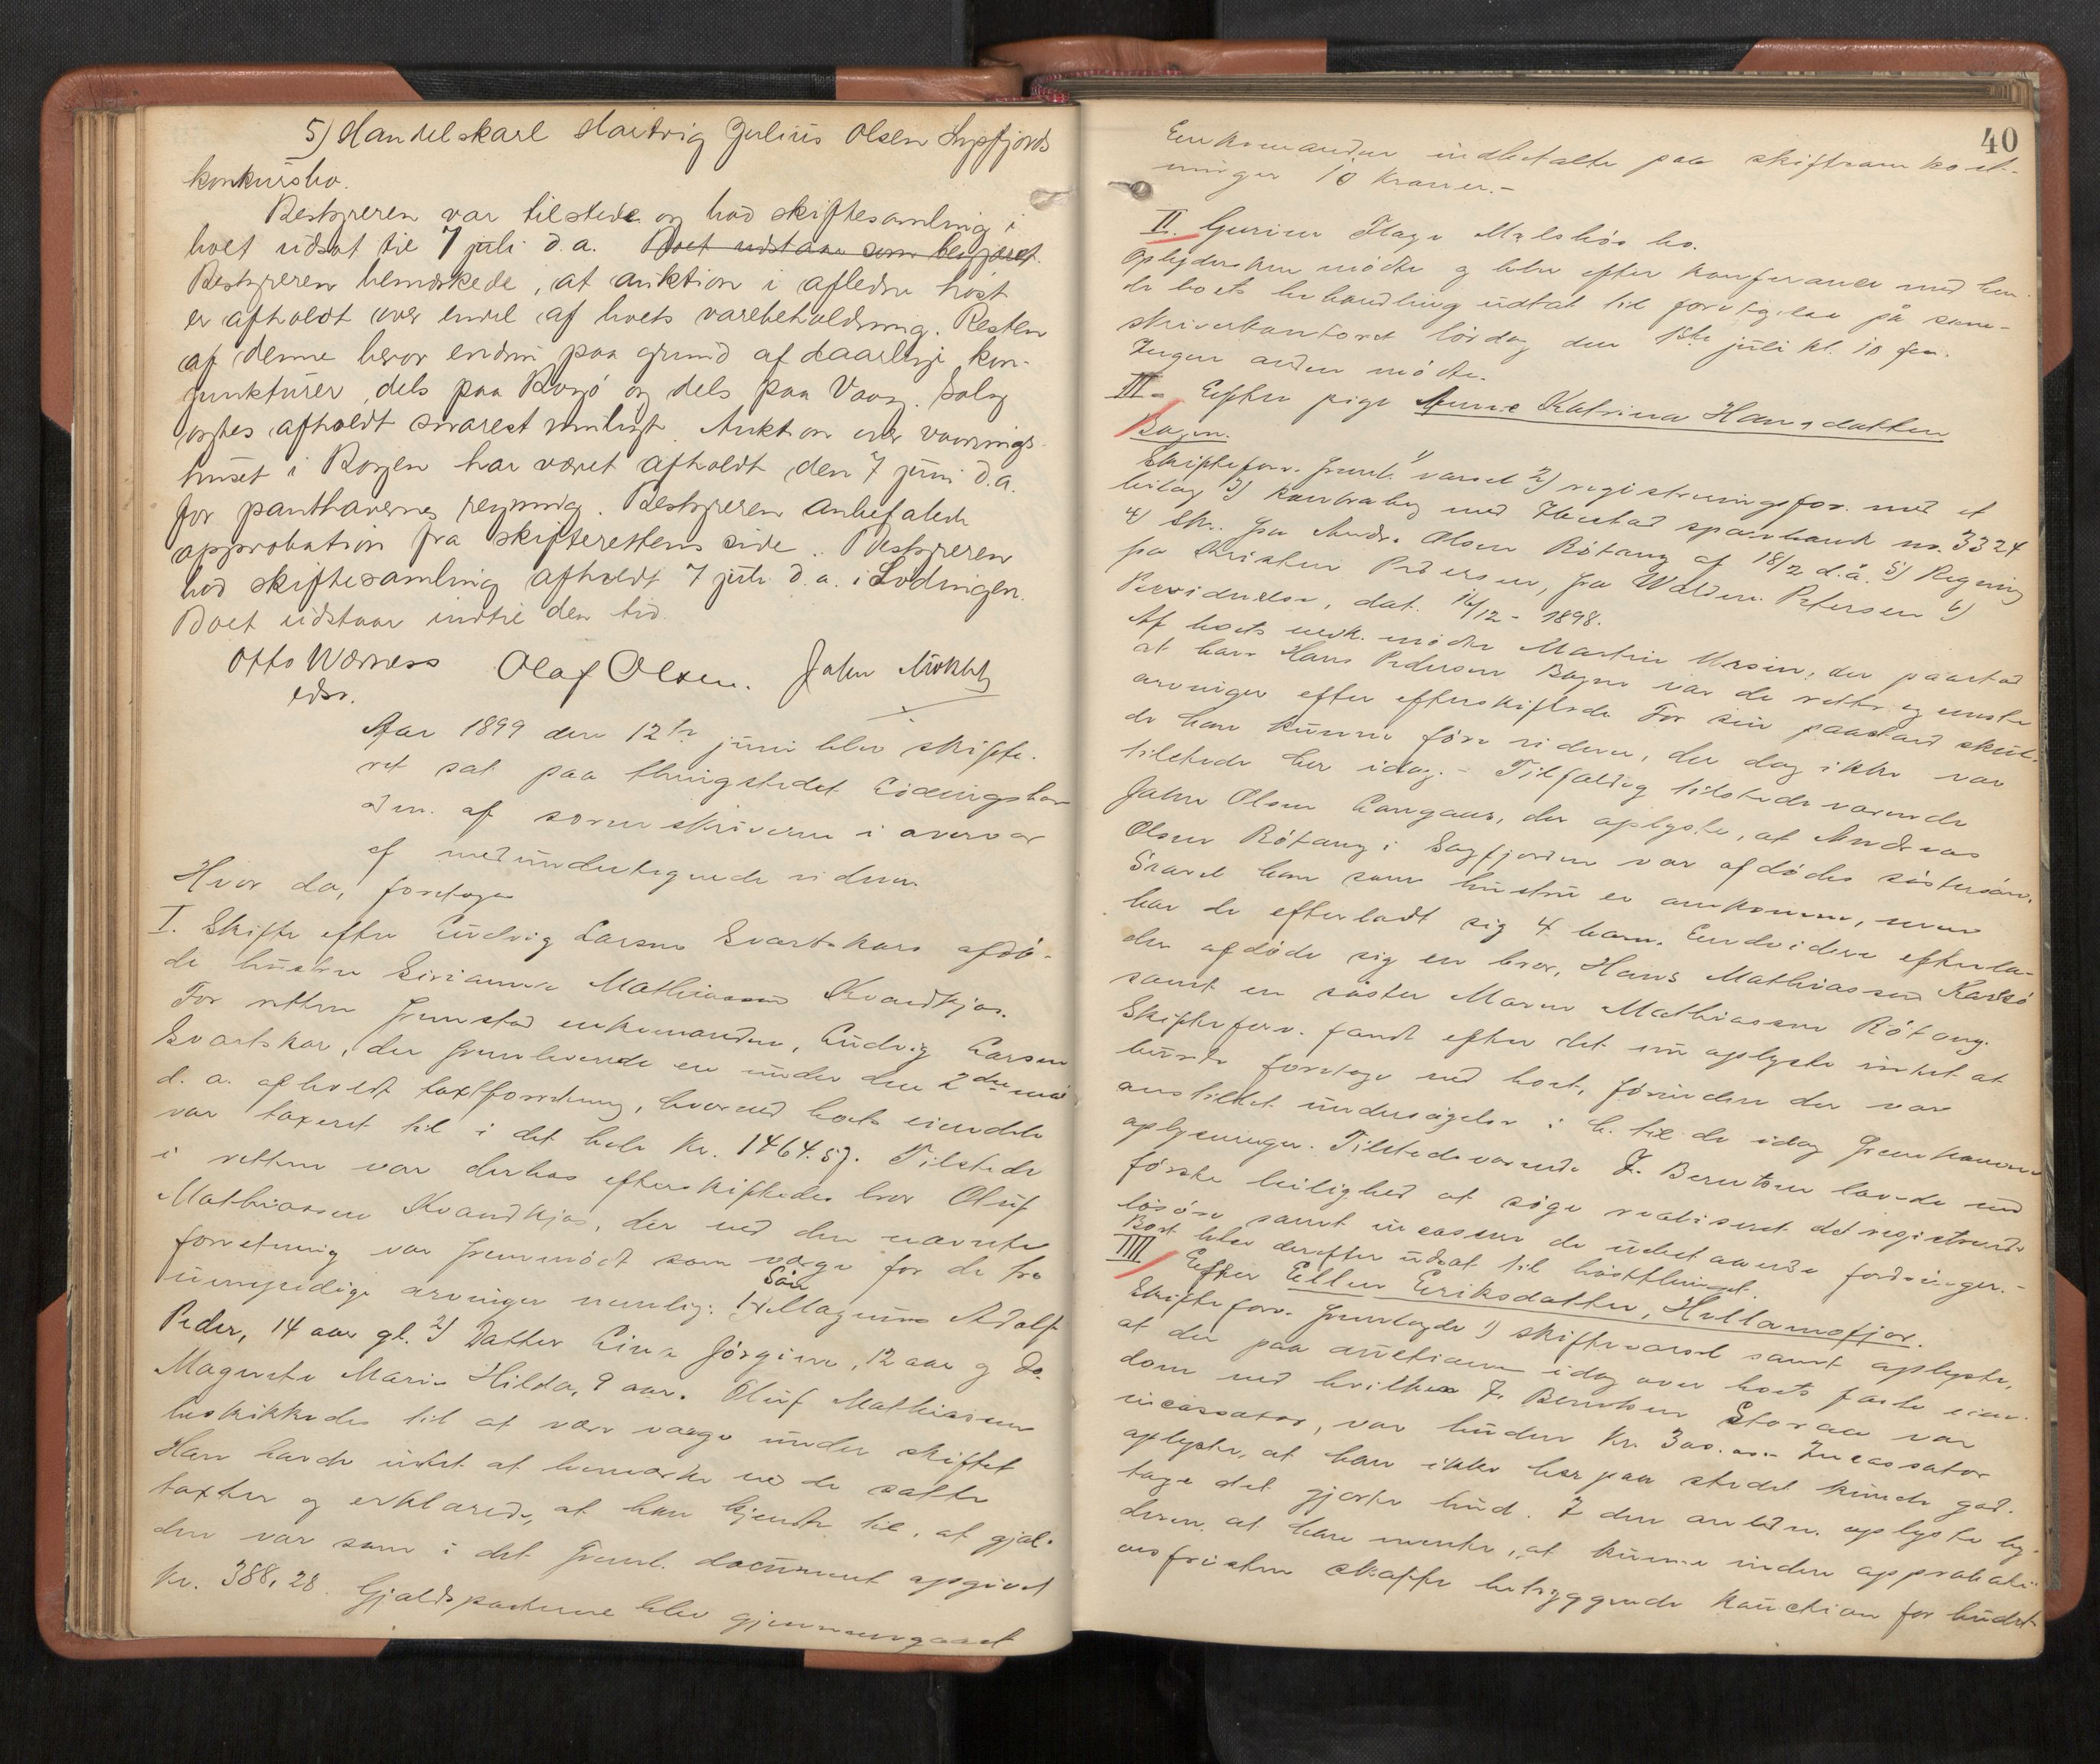 5) Handelskarl Hartvig Julius Olsen
konkursbo.
Bestyreren var tilstede og bød skiftesamling i
boet udsat til 7 juli d.a. Boet udstaar som begjæret.
Bestyreren bemærkede, at auktion i afledne høst
er afholdt over endel af boets varebeholdning. Resten
af denne beror endnu paa grund af daarlige kon-
junkturer, dels paa Korsjø og dels paa Vaag. Salg
agtes afholdt snarest muligt. Auktion over vaanings-
huset i Bogen har været afholdt den 7 juni d.a.
for panthavernes regning. Bestyreren anbefalede
approbation fra skifterettens side. Bestyreren
bød skiftesamling afholdt 7 juli d.a. i Lødingen.
Boet udstaar indtil den tid
Otto Værness Olaf Olsen. John
edsv.
Aar 1899 den 12te juni blev skifte-
ret sat paa thingstedet Lødingshav
adm. af sorenskriveren i overvær
af medundertegnede vidner.
Hvor da, foretoges
I. Skifte efter Ludvig Larsen Svartskars afdø-
de hustru Sirianna Mathiasen Kvandkjos.
For retten fremstod enkemanden, Ludvig Larsen
Svartskar, der fremleverede en under den 2den mai
d. a. afholdt taxtforretning, hvorved boets eiendele
var taxeret til i det hele kr. 1464.57. Tilstede
i retten var derhos efterskiftedes bror Oluf
Mathiassen Kvandkjos, der ved den nævnte
forretning var fremmødt som værge for de tre
umyndige arvinger nemlig: 1) Søn Magnus Adolf
Peder, 14 aar gl. 2) Datter Lina Jørgine, 12 aar og do.
Magrete Marie Hilda, 9 aar. Oluf Mathiassen
beskikkedes til at være værge under skiftet
Han havde intet at bemærke ved de satte
taxter og erklærede, at han kjendte til, at gjæl-
den var som i det freml. document opgivet
kr. 388,28. Gjældsposterne blev gjennemgaaet
40
Enkemanden indbetalte paa skifteomkost-
ninger 10 kroner.-
II. Gurine Hagr bo.
Opbydersken mødte og blev efter konferance med hen-
de boets behandling udsat til foretagelse på soren-
skriverkontoret lørdag den 1ste juli kl. 10 fm.
Ingen anden mødte.
III. Efter pige Anne Katrina Hansdatter
Bogen.
Skifteforv. freml. 1) varsel 2) registreringsforr. med et
bilag 3) kontrabog med Ibestad sparebank nr. 3324
4) Skr. fra Andr. Olsen Røtang af 18/2 d.å. 5) Regning
fra Kristen Pedersen, fra Waldem. Petersen 6)
dat. 16/12 - 1898.
Af boets vedk. mødte Martin Ursin, der paastod
at han Hans Pedersen Bogen var de rette og eneste
arvinger efter efterskiftede. For sin paastand skul-
de han kunne føre vidner, der dog ikke var
tilstede her idag.- Tilfældig tilstedeværende
Johan Olsen Langaas, der oplyste, at Andreas
Olsen Røtang i Sagfjorden var afdødes søstersøn.
Saavel han som hustru er omkommen, men
har de efterladt sig 4 barn. Endvidere efterlo-
der afdøde sig en bror, Hans Mathiassen Karlsø
samt en søster Maren Mathiassen Røtang.
Skifteforv. fandt efter det nu oplyste intet at
burde foretage ved boet, førinden der var
anstillet undersøgelser i h. til de idag fremkomne
oplysninger. Tilstedeværende J. Berntsen lovede ved
første leilighed at søge realiseret det registrerede
løsøre samt incassere de udestaaende fordringer.-
Boet blev derefter udsat til høstthinget.
IIII Efter Ellen Eriksdatter, Hellemofjor.
Skifteforv. fremlagde 1) skiftevarsel samt oplyste,
at der paa auctionen idag over boets faste eien-
dom ved hvilken J. Berntsen Storaa var
incassator, var buden kr. 300.00.- Incassator
oplyste, at han ikke her paa stedet kunde god-
tage det gjorte bud. I den anledn. oplyste by-
deren at han mente, at kunne inden approbati-
onsfristen skaffe betryggende kauction for budet